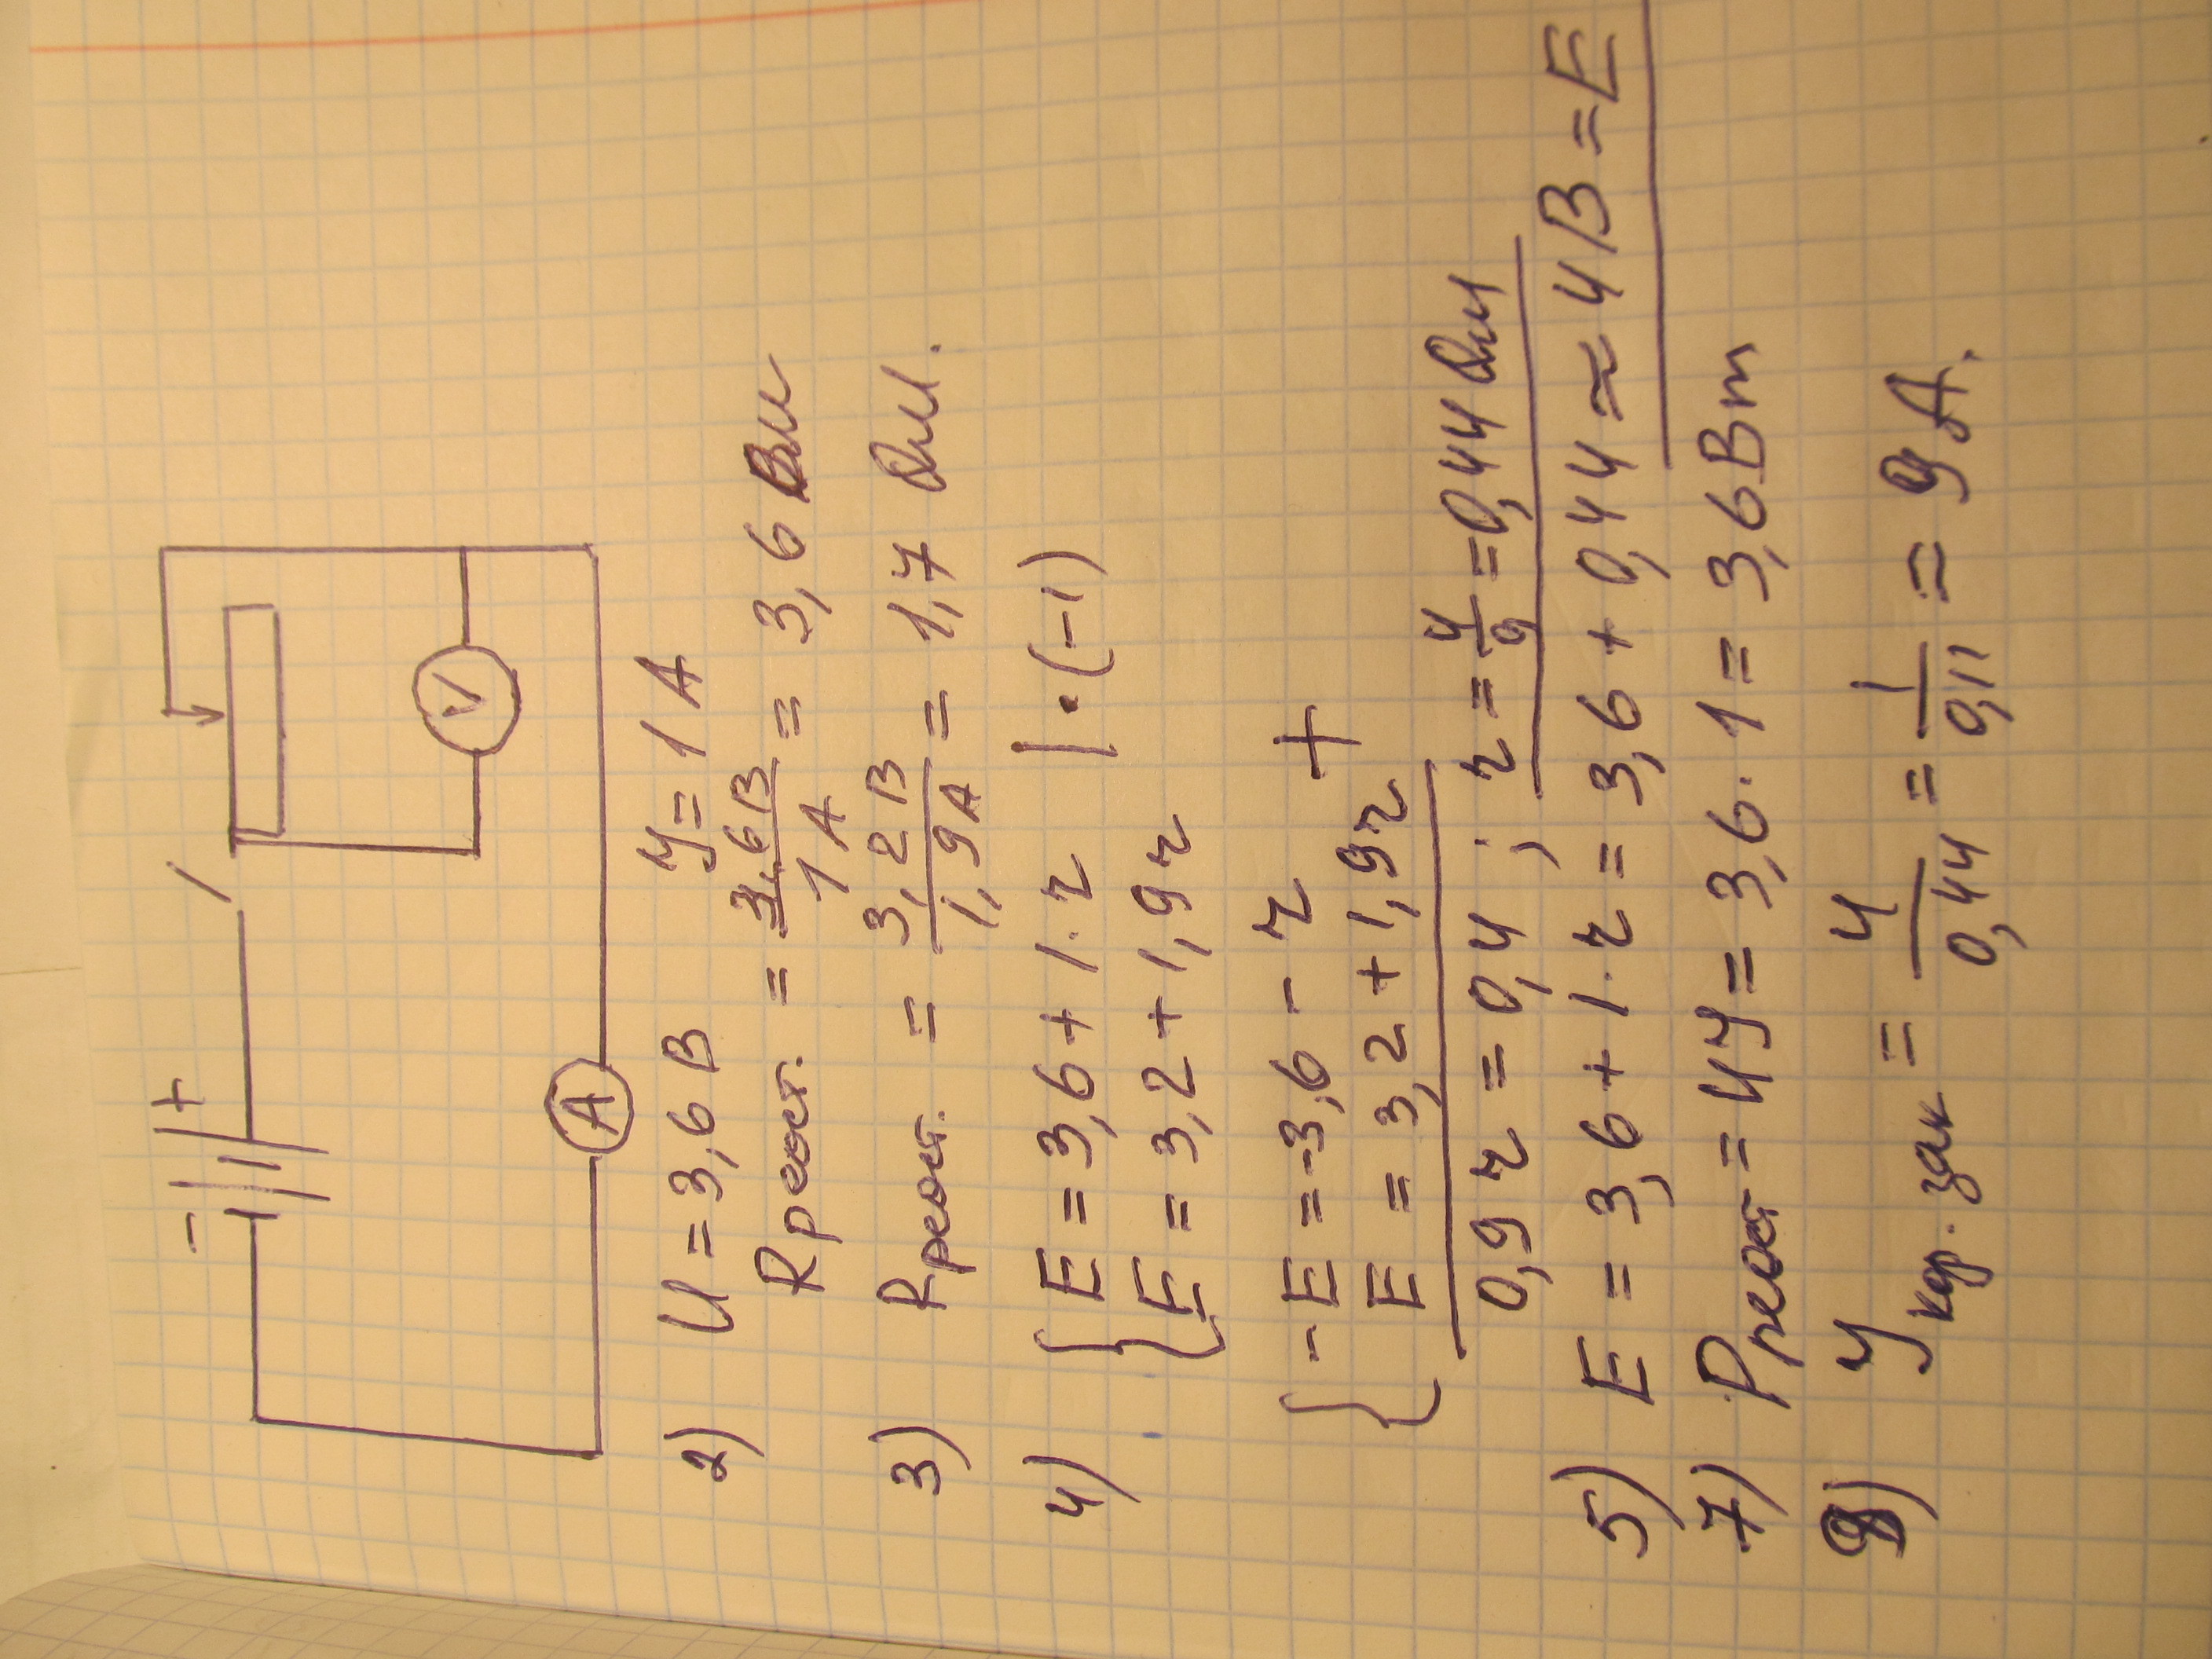 - +
V
A
2) U = 3,6 В У = 1 А
Rреост. = 3,6 В / 1 А = 3,6 Ом
3) Rреост. = 3,2 В / 1,9 А = 1,7 Ом.
4) { E = 3,6 + 1·r |·(-1)
E = 3,2 + 1,9r
{ -E = -3,6 - r
E = 3,2 + 1,9r +
0,9r = 0,4 ; r = 4/9 = 0,44 Ом
5) E = 3,6 + 1·r = 3,6 + 0,44 ≈ 4В = E
7) Pреост = UУ = 3,6·1 = 3,6 Вт
8) Укор.зак = 4/0,44 = 1/0,11 = 9 А.